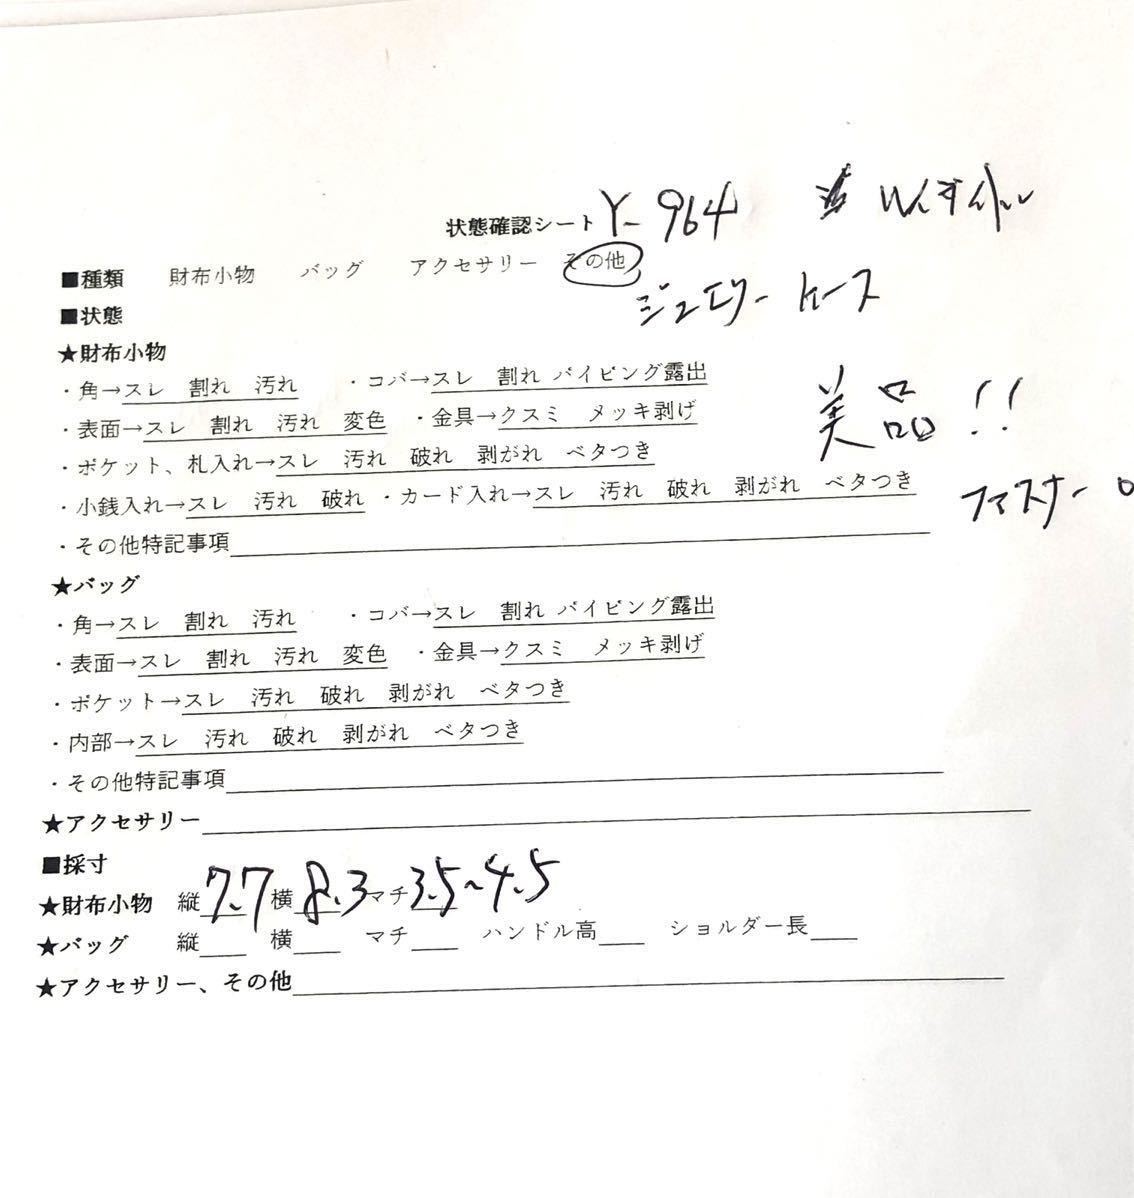 状態確認シート Y-964
■種類 財布小物 バッグ アクセサリー その他
ジュエリーケース
■状態
★財布小物
・角→スレ 割れ 汚れ ・コバ→スレ 割れ パイピング露出
・表面→スレ 割れ 汚れ 変色 ・金具→クスミ メッキ剥げ
美品!!
・ポケット、札入れ→スレ 汚れ 破れ 剥がれ ベタつき
・小銭入れ→スレ 汚れ 破れ ・カード入れ→スレ 汚れ 破れ 剥がれ ベタつき
ファスナー
・その他特記事項
★バッグ
・角→スレ 割れ 汚れ ・コバ→スレ 割れ パイピング露出
・表面→スレ 割れ 汚れ 変色 ・金具→クスミ メッキ剥げ
・ポケット→スレ 汚れ 破れ 剥がれ ベタつき
・内部→スレ 汚れ 破れ 剥がれ ベタつき
・その他特記事項
★アクセサリー
■採寸
★財布小物 縦7.7 横8.3 マチ3.5~4.5
★バッグ 縦 横 マチ ハンドル高 ショルダー長
★アクセサリー、その他